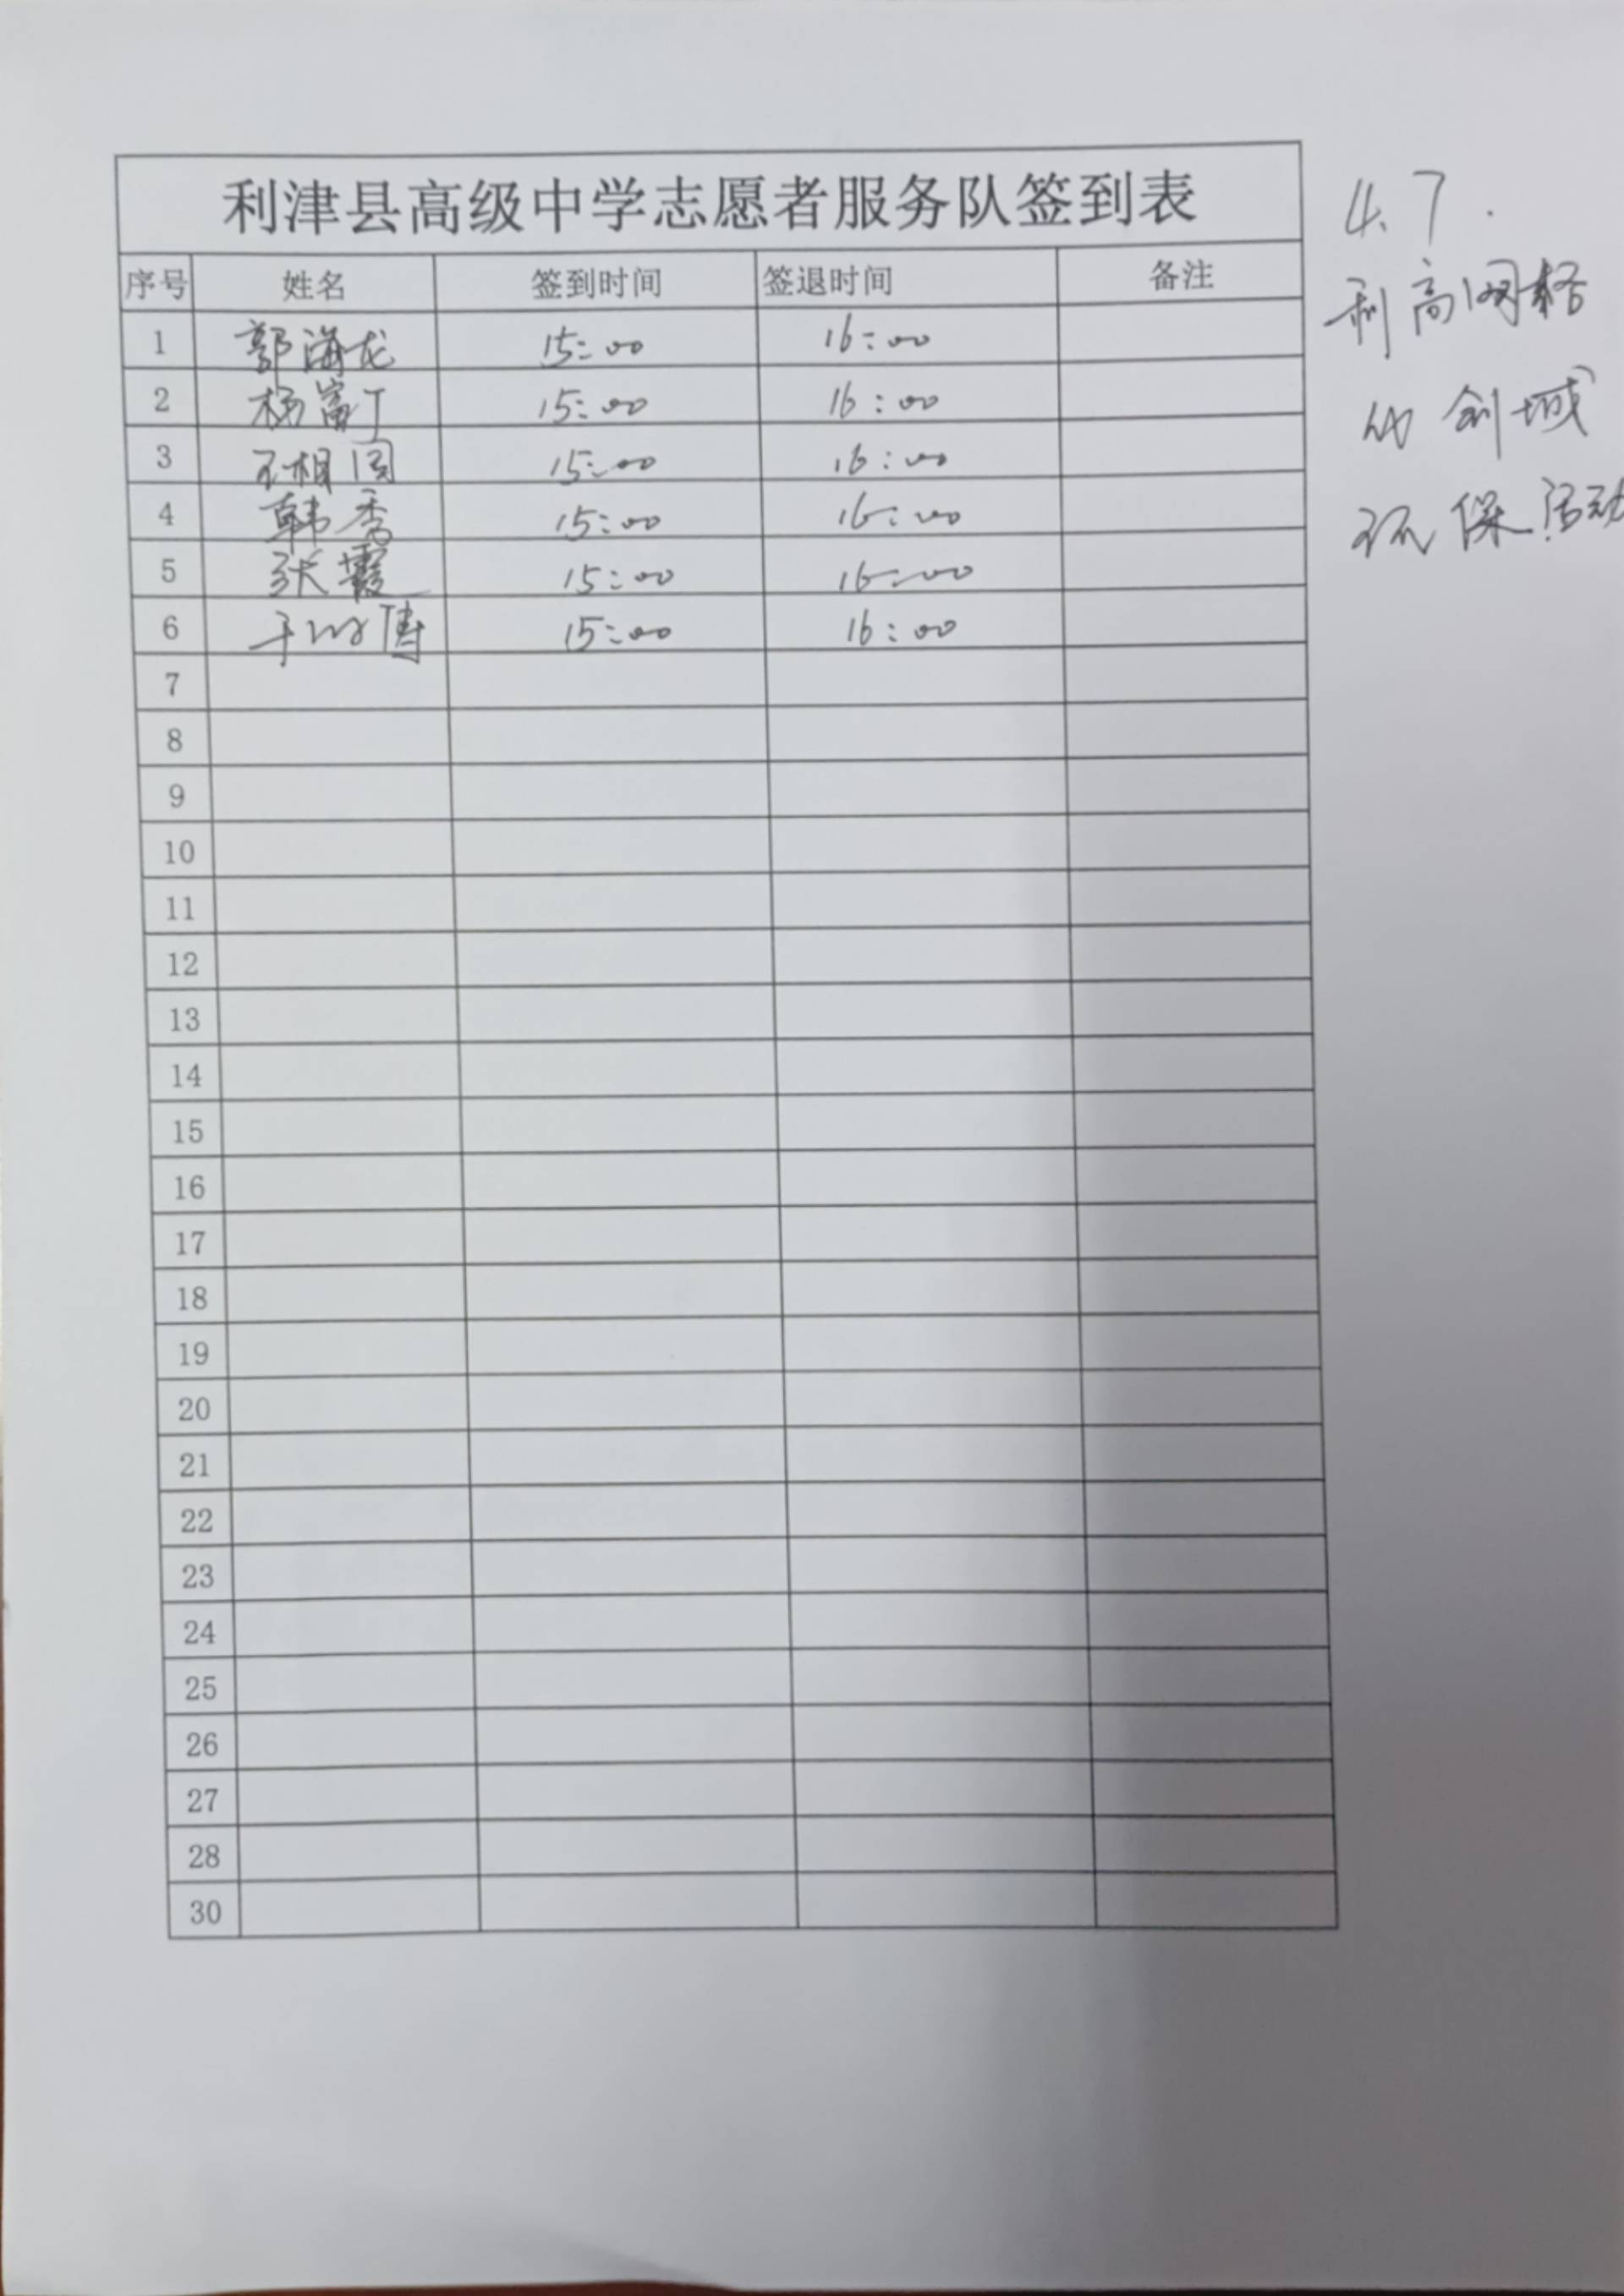 利津县高级中学志愿者服务队签到表
序号 姓名 签到时间 签退时间 备注
1 郭海龙 15:00 16:00
2 杨富丁 15:00 16:00
3 王相国 15:00 16:00
4 韩秀 15:00 16:00
5 张霞 15:00 16:00
6 于 15:00 16:00
7
8
9
10
11
12
13
14
15
16
17
18
19
20
21
22
23
24
25
26
27
28
30
4.7.
利高网格
化创城
环保活动